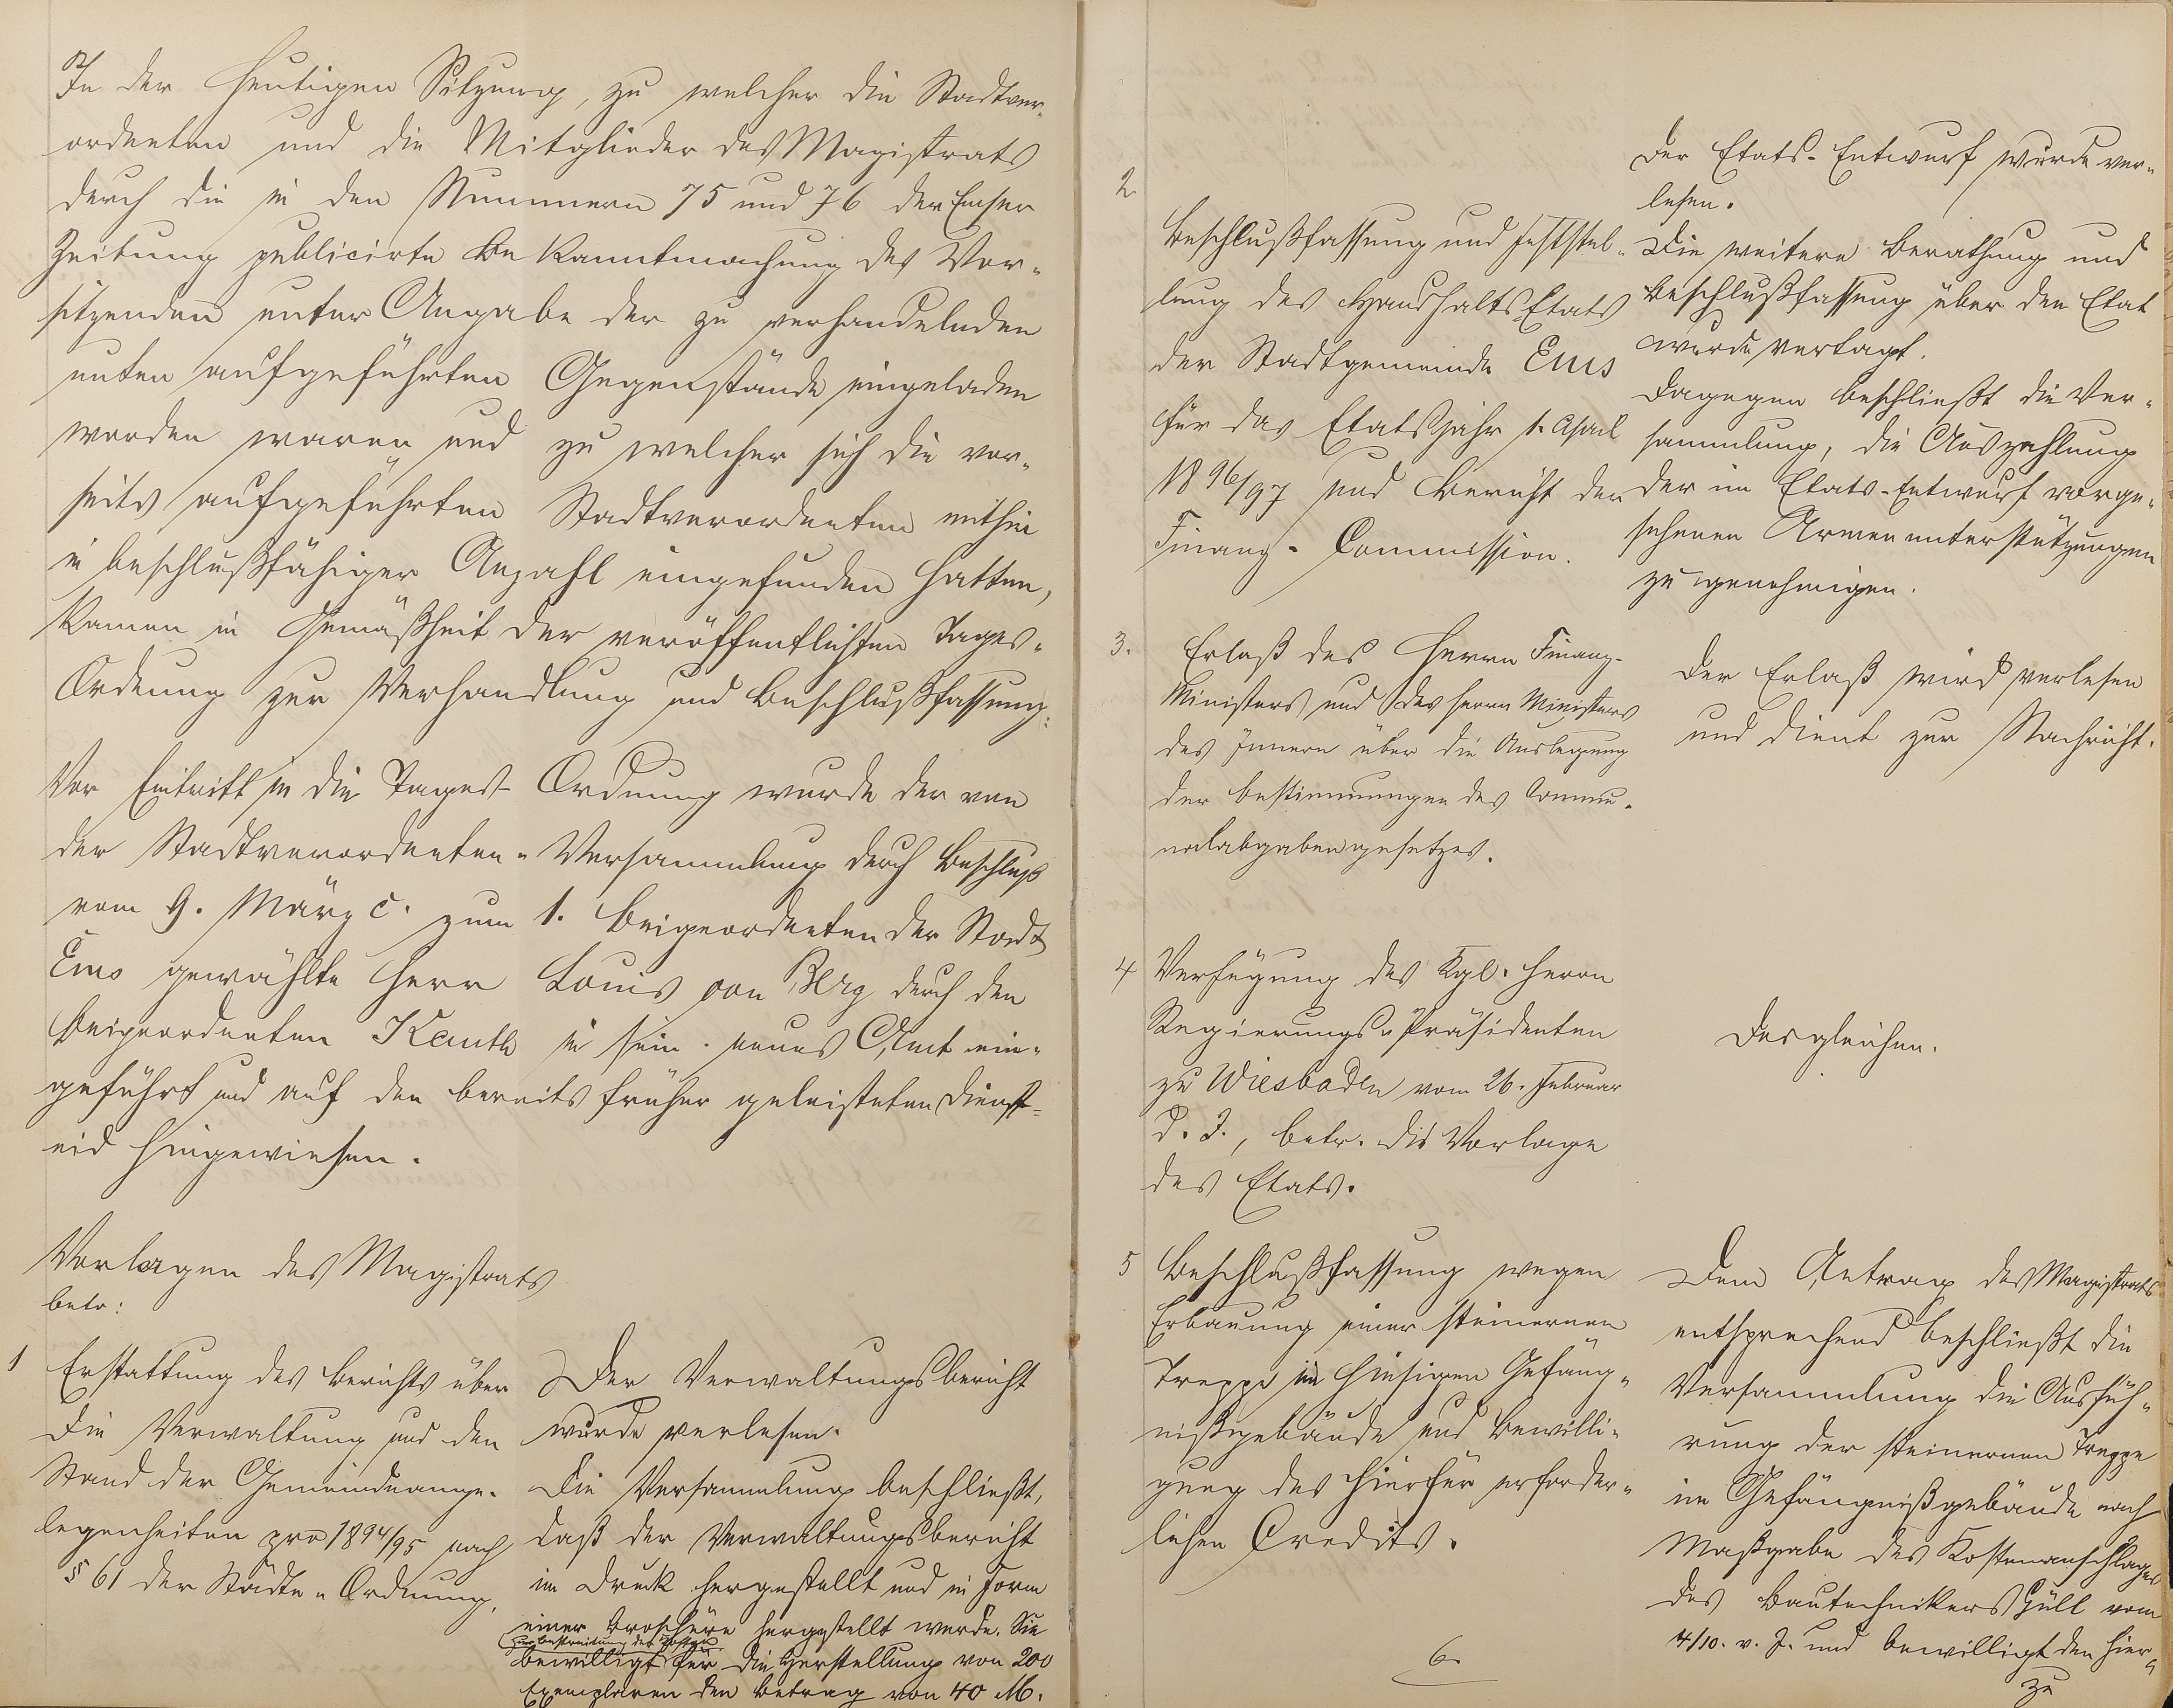 In der heutigen Sitzung, zu welcher die Stadtver-
ordneten und die Mitglieder des Magistrats
durch die in den Nummern 75 und 76 der Emser
Zeitung publicirte Bekanntmachung des Vor-
sitzenden unter Angabe der zu verhandelnden
unten aufgeführten Gegenstände eingeladen
worden waren und zu welcher sich die vor-
seits aufgeführten Stadtverordneten mithin
in beschlußfähiger Anzahl eingefunden hatten,
kamen in Gemäßheit der veröffentlichten Tages-
Ordnung zur Verhandlung und Beschlußfassung:
Vor Eintritt in die Tages-Ordnung wurde der von
der Stadtverordneten-Versammlung durch Beschluß
vom 9. März c. zum 1. Beigeordneten der Stadt
Ems gewählte Herr Louis von Berg durch den
Beigeordneten Kauth in sein neues Amt ein-
geführt und auf den bereits früher geleisteten Dienst-
eid hingewiesen.
Vorlagen des Magistrats
betr:
1 Erstattung des Berichts über
die Verwaltung und den
Stand der Gemeindeange-
legenheiten pro 1894/95 nach
§ 61 der Städte-Ordnung.
Der Verwaltungsbericht
wurde verlesen.
Die Versammlung beschließt,
daß der Verwaltungsbericht
im Druck hergestellt und in Form
einer Broschüre hergestellt werde. Sie
zur Bestreitung der Kosten
bewilligt für die Herstellung von 200
Exemplaren den Betrag von 40 M.
2.
Beschlußfassung und Feststel-
lung des Haushalts-Etats
der Stadtgemeinde Ems
für das Etatsjahr 1. April
1896/97 und Bericht der
Finanz-Commission.
Der Etats-Entwurf wurde ver-
lesen.
Die weitere Berathung und
Beschlußfassung über den Etat
wurde vertagt.
Dagegen beschließt die Ver-
sammlung, die Auszahlung
der im Etats-Entwurf vorge-
sehenen Armenunterstützungen
zu genehmigen.
3. Erlaß des Herrn Finanz-
Ministers und des Herrn Ministers
des Innern über die Auslegung
der Bestimmungen des Commu-
nalabgabengesetzes.
Der Erlaß wird verlesen
und dient zur Nachricht.
4 Verfügung des Kgl. Herrn
Regierungs-Präsidenten
zu Wiesbaden vom 26. Februar
d. J., betr. die Vorlage
des Etats.
Desgleichen.
5 Beschlußfassung wegen
Erbauung einer steinernen
Treppe im hiesigen Gefäng-
nißgebäude und Bewilli-
gung des hierfür erforder-
lichen Credits.
Dem Antrag des Magistrats
entsprechend beschließt die
Versammlung die Ausfüh-
rung der steinernen Treppe
im Gefängnißgebäude nach
Maßgabe des Kostenanschlages
des Bautechnikers Hüll vom
4/10. v. J. und bewilligt den hier-
zu
6.